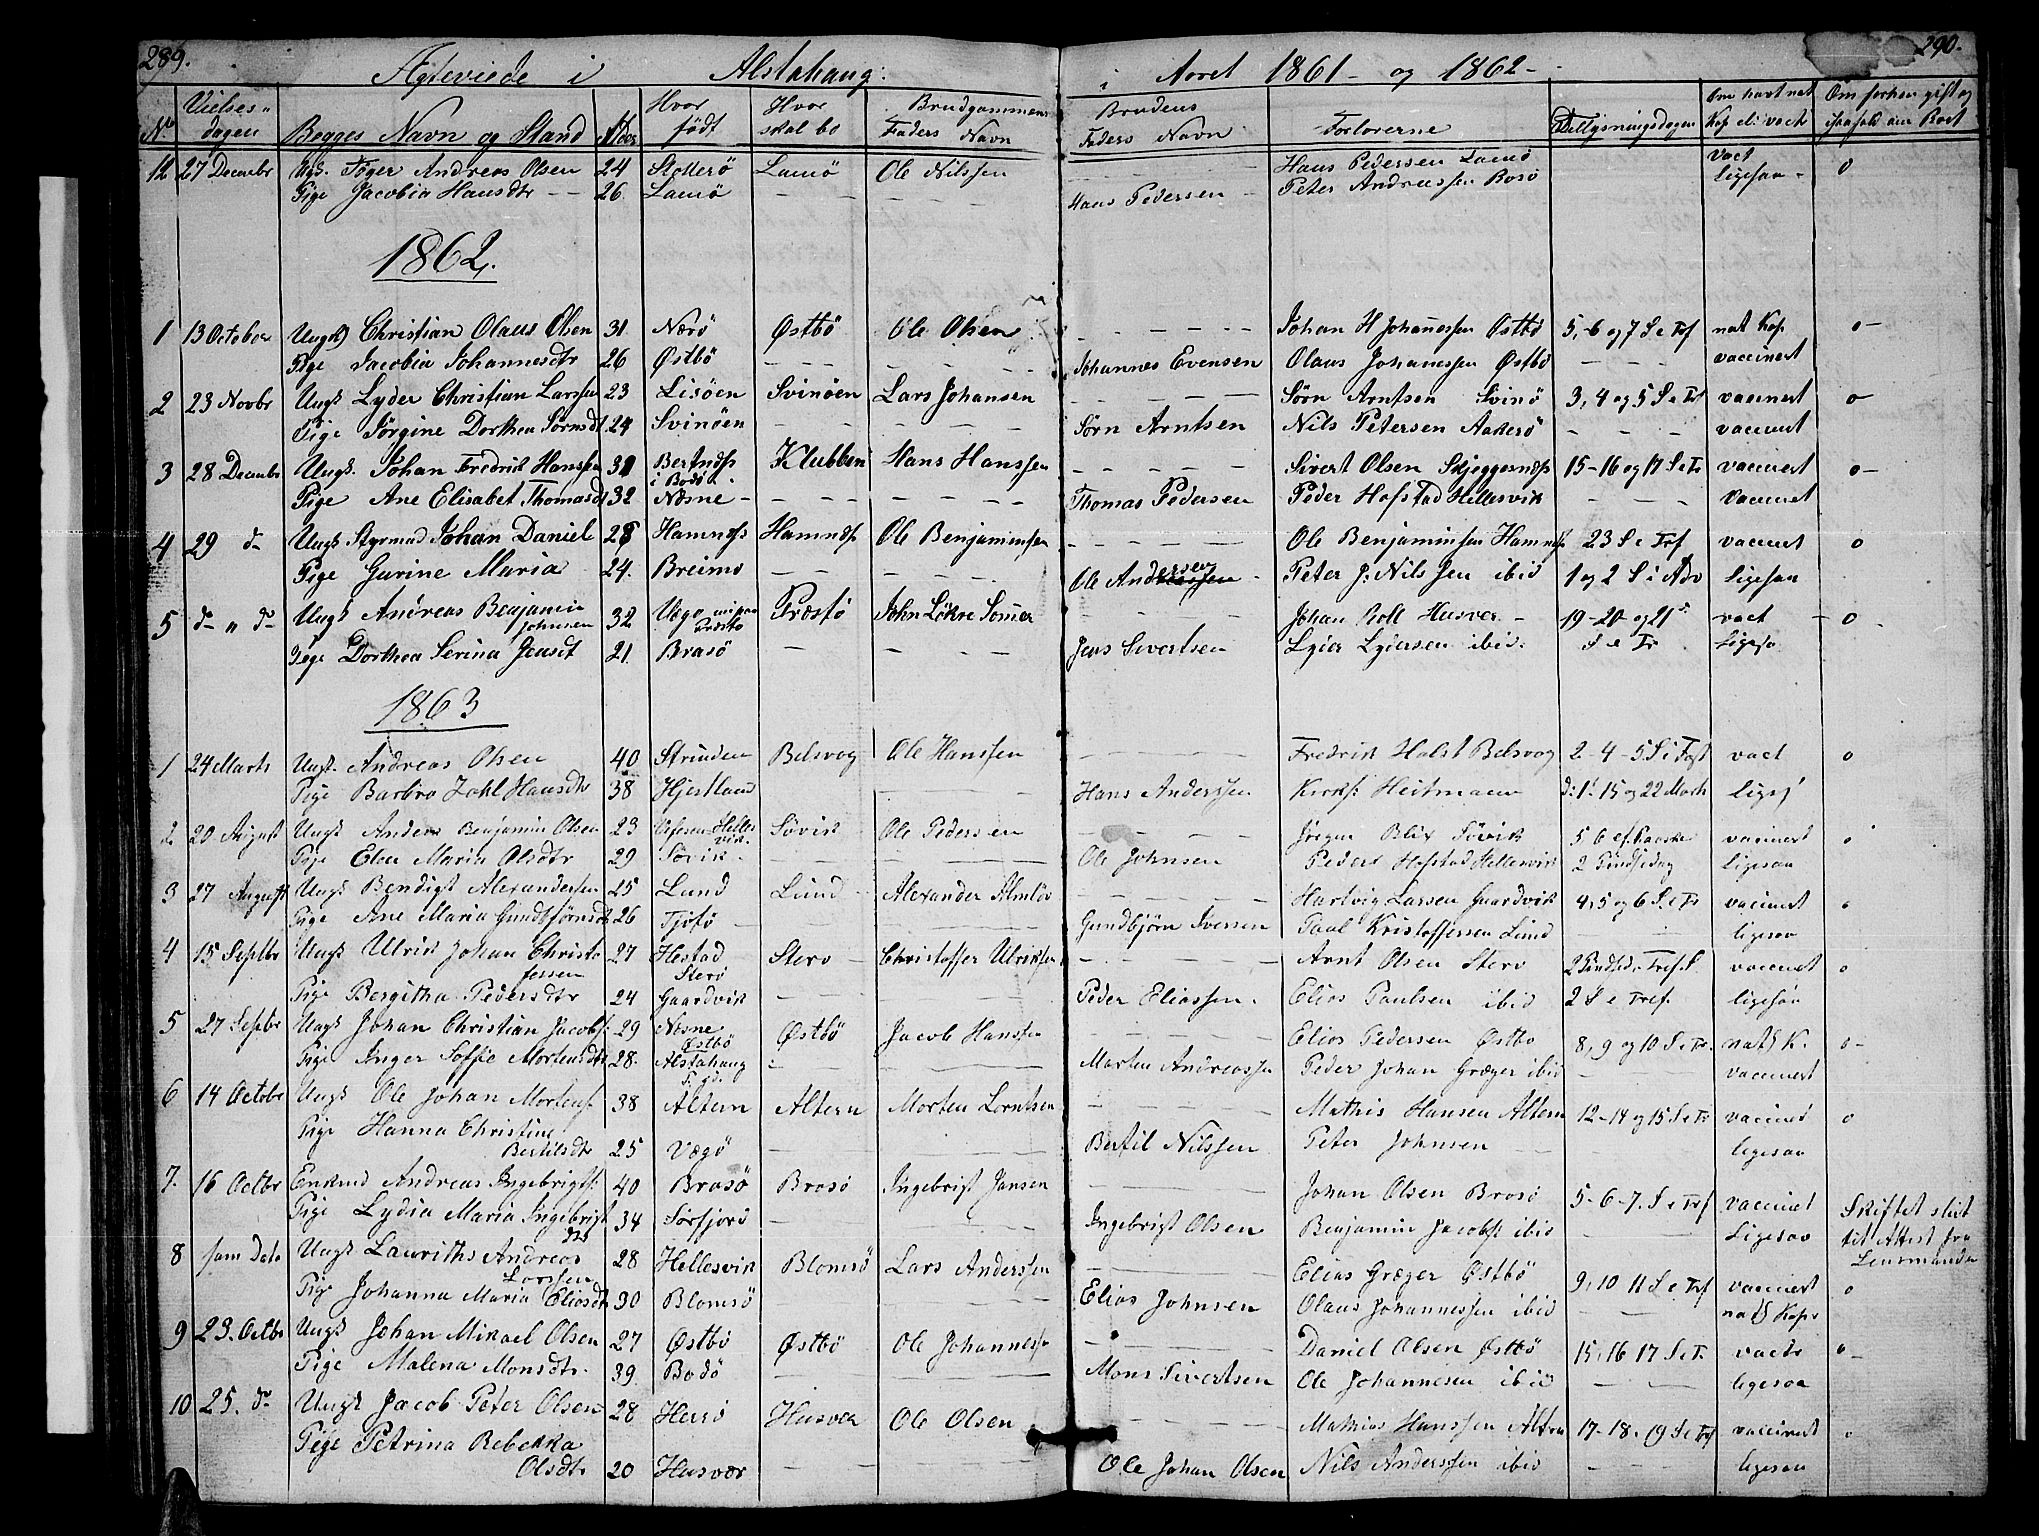 289.
290.
Ægteviede i Alstahaug i Aaret 1861 - og 1862 -
No Vielses- dagen Begges Navn og Stand Alder Hvor født Hvor skal bo Brudgommens Faders Navn Brudens Faders Navn Forloverne Tillysningsdagen Om havt nat Kop el. vact Om forhen gift og
12 27 December Ugk. Andreas Olsen 24 Lamö Ole Nilssen Hans Pedersen Lamö vact 0
Pige Jacobia Hansdtr 26 Lamö Hans Pedersen Peter Andreassen Bosö ligesaa
1862.
1 13 October Ungk Christian Olaus Olsen 31 Nærö Østbö Ole Olsen Johan H Johanessen Østbö 5,-6 og 7 S e Tref nat Kop 0
Pige Jacobia Johannesdtr 26 Østbö Johannes Evensen Olaus Johanessen Østbö vaccinert
2 23 Novbr Ungk Lyder Christian Larssen 23 Lisöen Svinöen Lars Johansen Sörn Arntsen Svinö 3, 4 og 5 S e Tref vaccinert 0
Pige Sörgine Dorthea Sörnsdt 24 Svinöen Sörn Arntsen Nils Petersen Aakerö vaccinert
3 28 December Ungk. Johan Fredrik Hanssen 31 i Bodö Klubben Hans Hanssen Sivert Olsen Skjeggesnæs 15-16 og 17 S e Tr vaccinert 0
Pige Ane Elisabet Thomasdt 32 Næsne Thomas Pedersen Peder Hofstad Hellesvik vaccinet
4 29 d Ungk Styrmand Johan Daniel 28 Hamnæs Hamnæs Ole Benjaminsen Ole Benjaminsen Hamnæs 23 S e Tref vaccinert 0
Pige Gurine Maria 24. Breimo Ole Andersen Peter J. Nilssen ibid 1 og 2 S i Adv ligesaa
5 d " d Ungk Andreas Benjamin Johnsen 32 Vego Præstö John Lökre Johan Roll Husvær 19-20- og 21 vact 0
Pige Dorthea Serina Jensdt 21. Brasö Jens Sivertsen Lyder Lydersen ibid. S e Tr Ligesa
1863
1 24 Marts Ungk. Andreas Olsen 40 Strinden Belsvog Ole Hanssen Fredrik Holst Belsvog 2-4-5 S i Fast vact 0
Pige Barbro Zahl Hansdtr 38 Hjertland Hans Anderssen Kirks: Heitmann d: 1. 15 og 22 Marts ligs
2 20 August Ungk Anders Benjamin Olsen 23 Hellesvik. Sövik Ole Pedersen Jörgen Blix Sövik 5 6 ef. Paaske vaccinert 0
Pige Elen Maria Olsdtr 29 Sövik Ole Johnsen Peder Hofstad Hellesvik 2 Pindsedag ligesaa
3 27 August Ungk Bendigt Alexandersen 25 Lund Lund Alexander Almlöv Hartvig Larsen Gaardvik 4, 5 og 6 S. e Tr vaccinert 0
Pige Ane Maria Gundbjörnsdt 26 Tjötö Gundbjörn Iversen Paul Kristoffersen Lund ligesaa
4 15 Septbr Ungk Ulrik Johan Christofersen 27 Hestad Sterö Stero Christoffer Ulriksen Arnt Olsen Stero 2 Pindsed. Tref. S. vaccinet 0
Pige Bergitha Pedersdtr 24 Gaardvik Peder Eliassen Elias Paulsen ibid 2 S e Tref. ligesaa
5 27 Septbr Ungk Johan Christian Jacobs: 29 Næsne Østbö Østbö Jacob Hanssen Elias Pedersen Østbo 8, 9 og 10 S e Tr. nat K. 0
Pige Inger Soffie Mortensdtr 28. Alstahaug Morten Andreassen Peder Johan Græger ibid vaccinert
6 14 Octobr Ungk Ole Johan Mortens 38 Altern Altern Morten Lorntsen Mathis Hansen Altern 12-14 og 15 S e Tr vaccinet 0
Pige Hanna Christine Bertilsdtr 25 Vægö Bertil Nilssen Peter Johnsen ligesaa
7. 16 Octbr Enkmd Andreas Ingebrigts: 40 Brasö Brasö Ingebrigt Jansen Johan Olsen Brasö 5-6-7. S e Tref vaccinet Skiftet slut
Pige Lydia Maria Ingebrigtdtr 34 Sörfjord Ingebrigt Olsen Benjamin Jacobs ibid Ligesaa til Attest fra Lensmanden
8 sam Dato Ungk Lauriths Andreas Larssen 28 Hellesvik Blomsö Lars Anderssen Elias Græger Østbö 9, 10 11 S e Tref vaccinert 0
Pige Johanna Maria Eliasdtr 30 Blomsö Elias Johnsen Olaus Johannessen ibid nat Kopr
9 23. Octbr Ungk Johan Mikael Olsen 27 Østbö Østbö Ole Johannessen Daniel Olsen Østbö 15, 16 17 S e T. vacts 0
Pige Malena Monsdtr. 39. Bodö Mons Sivertsen Ole Johannesen ibid ligesaa
10 25. do Ungk Jacob Peter Olsen 28 Herrö Husvær Ole Olsen Mathias Hanssen Altern 17-18. 19 S e Tref vaccinert 0
Pige Petrina Rebekka Olsdtr 20 Husvær Ole Johan Olsen Nils Anderssen ibid ligesaa